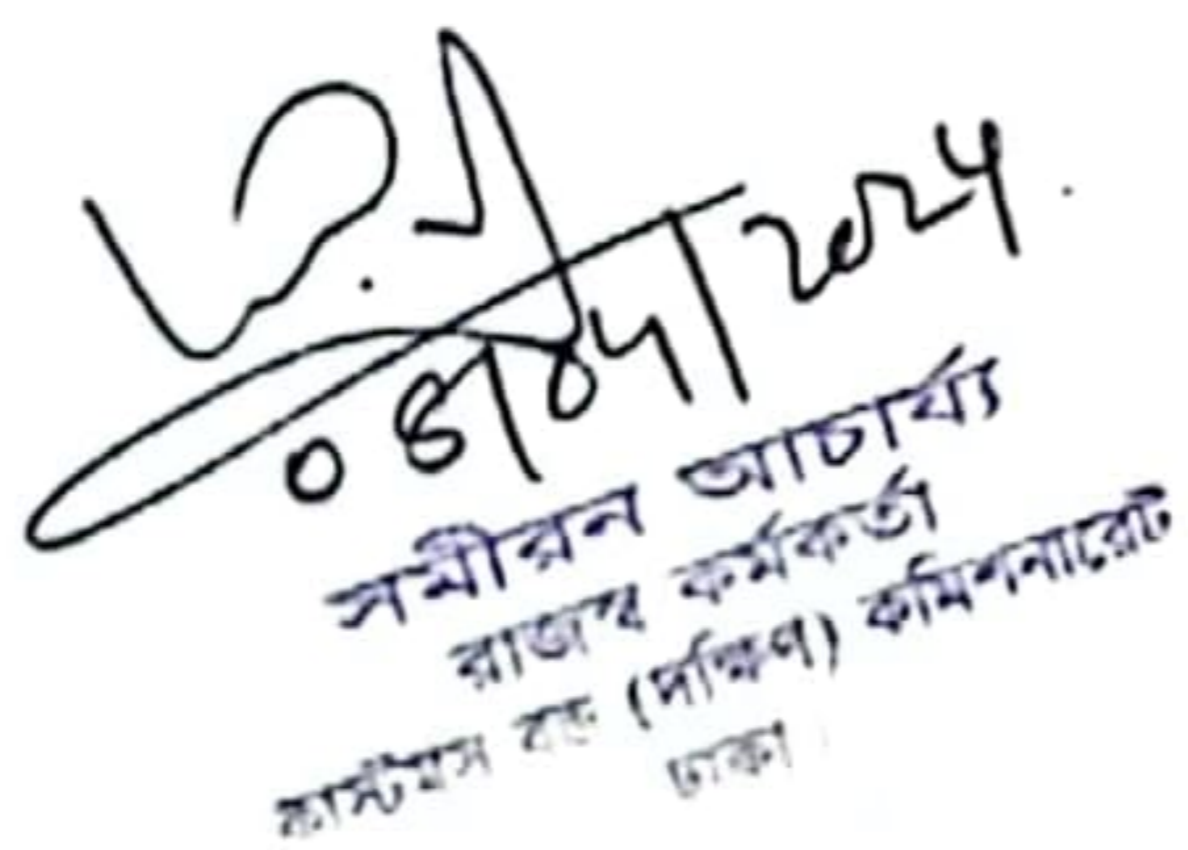 সমীরন আচার্য্য
রাজস্ব কর্মকর্তা
কাস্টমস বন্ড (দক্ষিণ) কমিশনারেট
ঢাকা